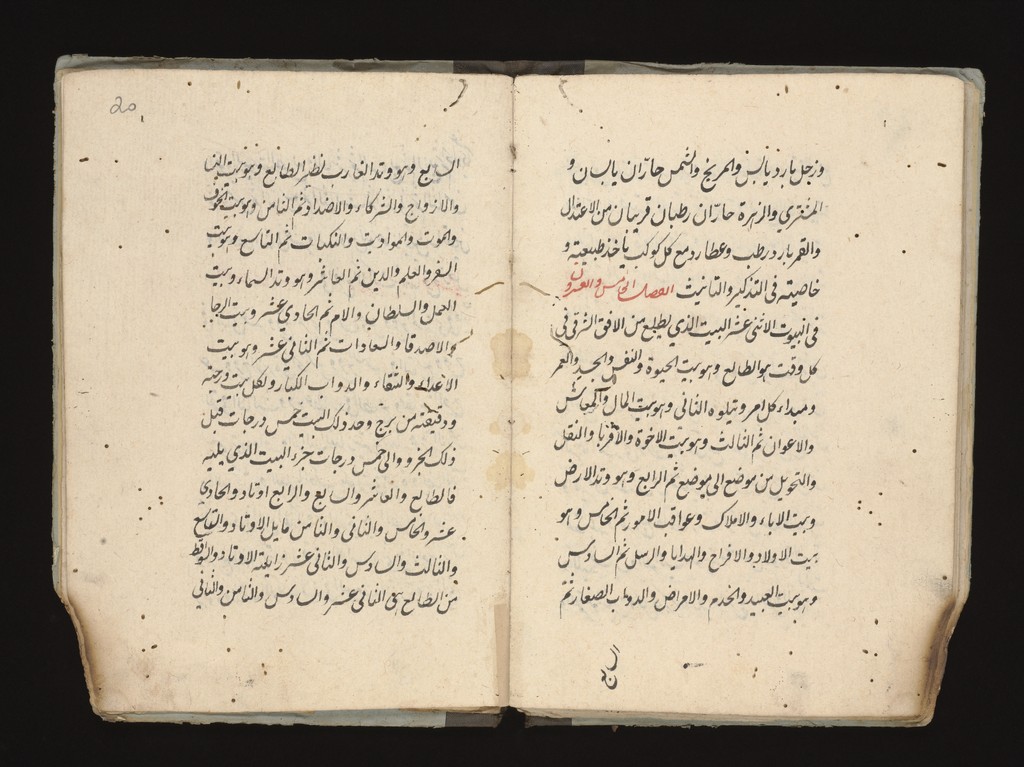 وزحل بارد يابس والمريخ والشمس حارّان يابسان و
المشتري والزهرة حارّان رطبان قريبان من الاعتدال
والقمر بارد رطب وعطارد مع كل كوكب ياخذ طبيعته و
خاصيته فى التذكير والتانيث الفصل الخامس والعشرون
فى البيوت الاثنى عشر البيت الذي يطلع من الافق الشرقى فى
كل وقت هو الطالع وهو بيت الحيوة والنفس والجسد والعمر
ومبداء كل امر ويتلوه الثانى وهو بيت المال والمعاش
والاعوان ثم الثالث وهو بيت الاخوة والاقربا والنقل
والتحويل من موضع الى موضع ثم الرابع وهو وتد الارض
وبيت الاباء والاملاك وعواقب الامور ثم الخامس وهو
بيت الاولاد والافراح والهدايا والرسل ثم السادس
وهو بيت العبيد والخدم والامراض والدواب الصغار ثم
السابع
20
السابع وهو وتد الغارب نظير الطالع وهو بيت النسا
والازواج والشركاء والاضداد ثم الثامن وهو بيت الخوف
والموت والمواريث والنكبات ثم التاسع وهو بيت
السفر والعلم والدين ثم العاشر وهو وتد السماء وبيت
العمل والسلطان والامر ثم الحادي عشر وبيت الرجا
والاصدقا والسعادات ثم الثانى عشر وهو بيت
الاعداء والشقاء والدواب الكبار ولكل بيت درجته
ودقيقته من برج وحد ذلك البيت خمس درجات قبل
ذلك الجزو والى خمس درجات جزء البيت الذي يليه
فالطالع والعاشر والسابع والرابع اوتاد والحادي
عشر والخامس والثانى والثامن مايل الاوتاد والتاسع
والثالث والسادس والثانى عشر زايلة الاوتاد والسواقط
من الطالع هى الثانى عشر والسادس والثامن والثاني